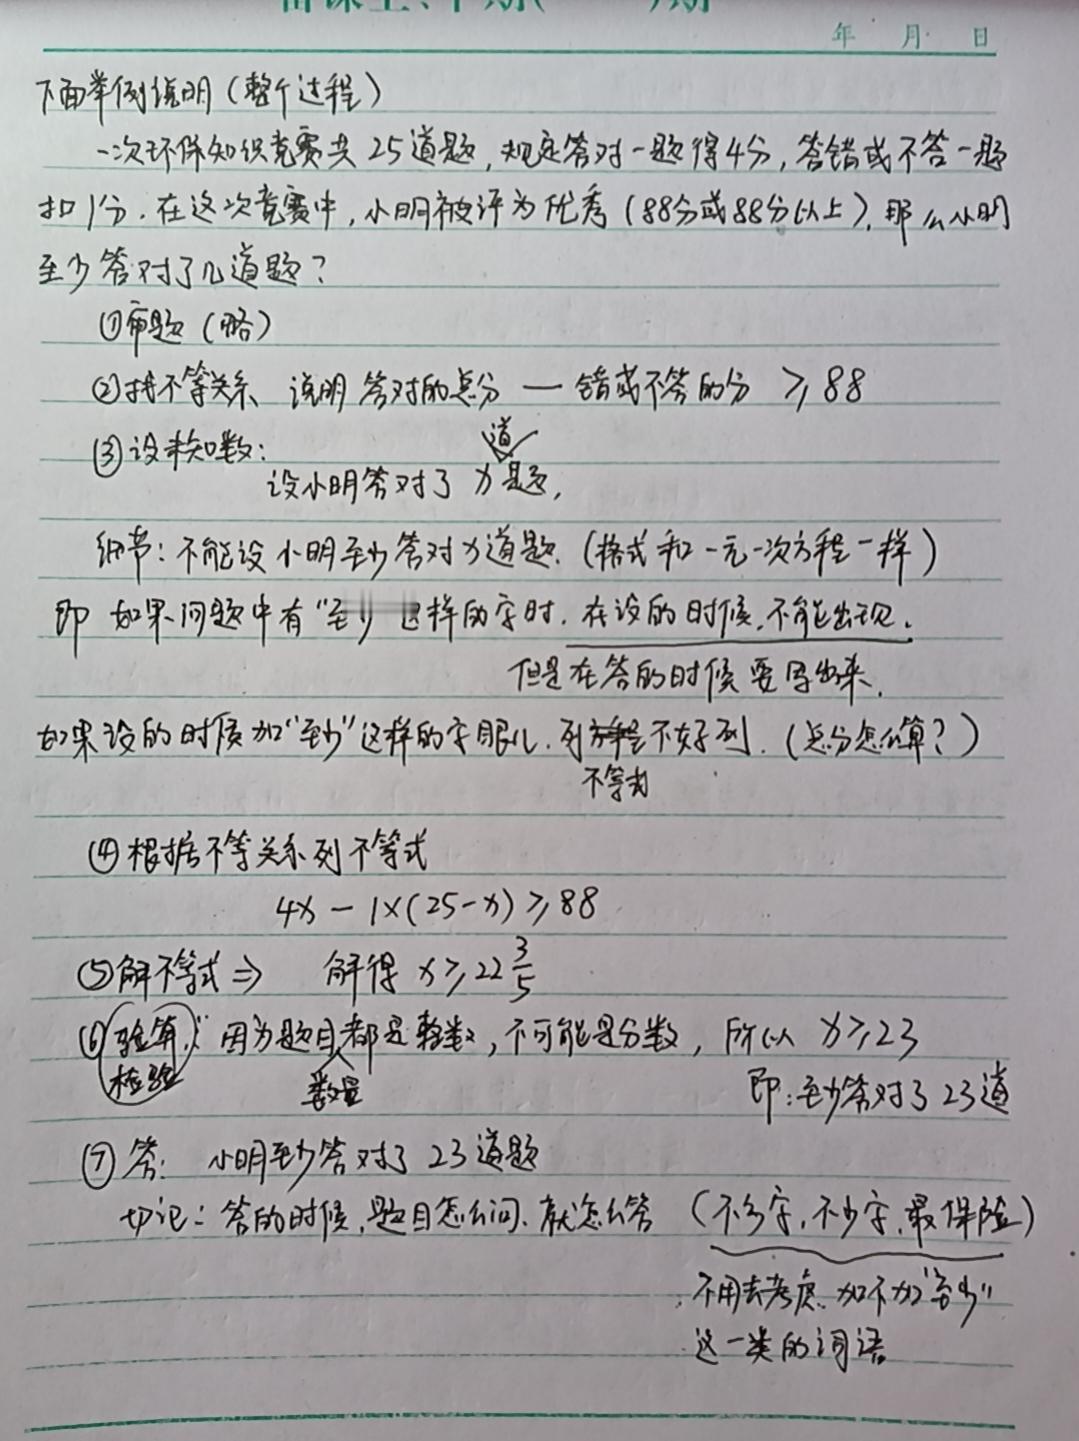 年 月 日
下面举例说明(整个过程)
一次环保知识竞赛共25道题,规定答对一题得4分,答错或不答一题
扣1分.在这次竞赛中,小明被评为优秀(88分或88分以上),那么小明
至少答对了几道题?
①审题(略)
②找不等关系 说明 答对的总分 — 错或不答的分 ≥88
③设未知数:
道
设小明答对了x题,
细节:不能设小明至少答对x道题.(格式和一元一次方程一样)
即 如果问题中有"至少 这样的字时.在设的时候.不能出现.
但是在答的时候要写出来.
如果设的时候加"至少"这样的字眼儿.列方程不好列.(总分怎么算?)
不等式
④根据不等关系列不等式
4x-1×(25-x)≥88
⑤解不等式⇒ 解得 x≥22 3/5
⑥验算:因为题目都是整数,不可能是分数,所以 x≥23
检验 数量 即:至少答对了23道
⑦答: 小明至少答对了23道题
切记:答的时候,题目怎么问.就怎么答 (不多字,不少字,最保险)
不用去考虑.加不加"至少"
这一类的词语